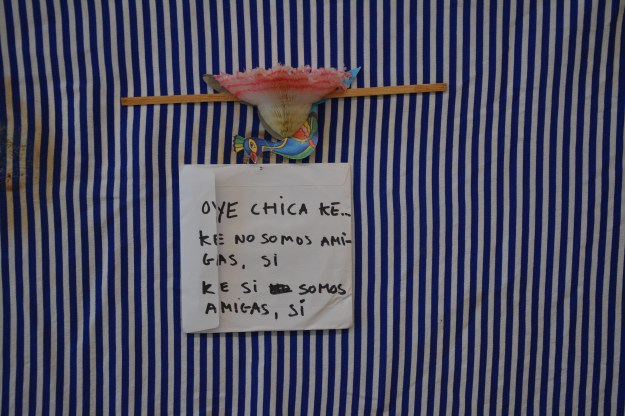 OYE CHICA KE...
KE NO SOMOS AMI-
GAS, SI
KE SI SOMOS
AMIGAS, SÍ